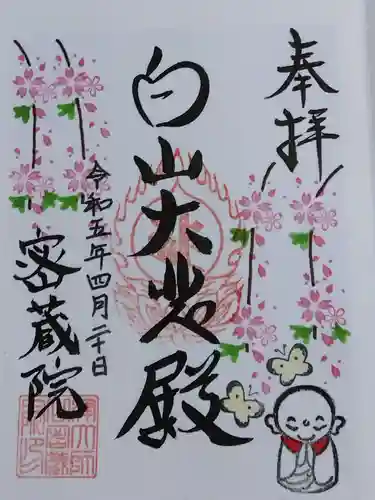 奉拝
白山大悲殿
令和五年四月二十日
密蔵院